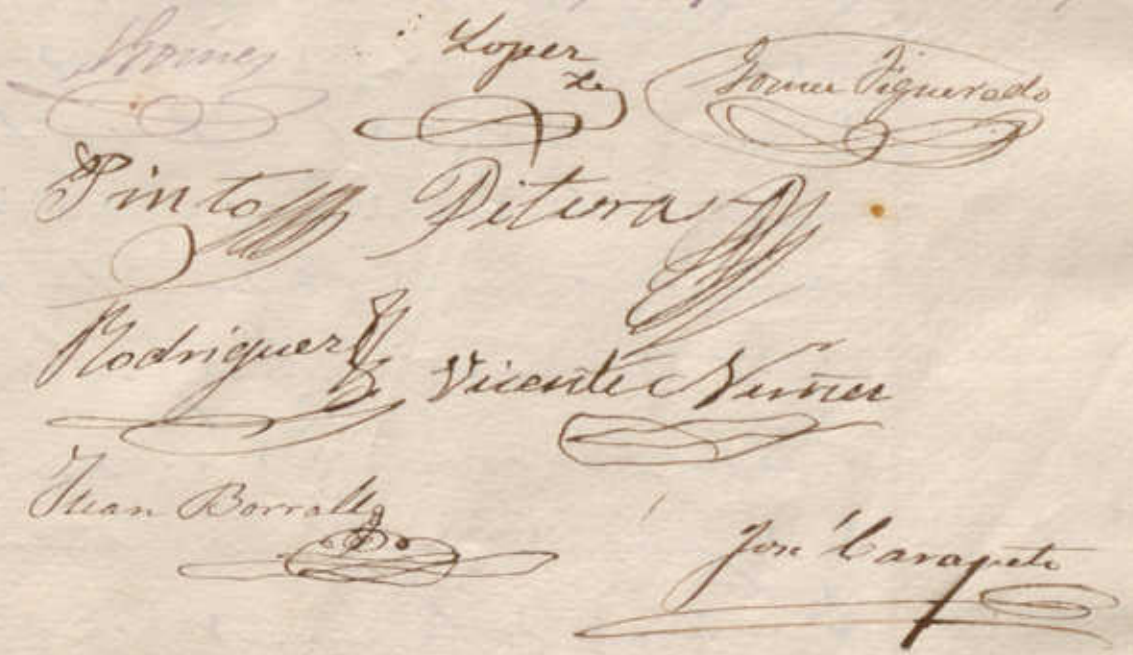 Gomez Lopez Gomez Figueredo
Pinto Pitera
Rodriguez Vicente Nuñez
Juan Borrallo
José Carapeto